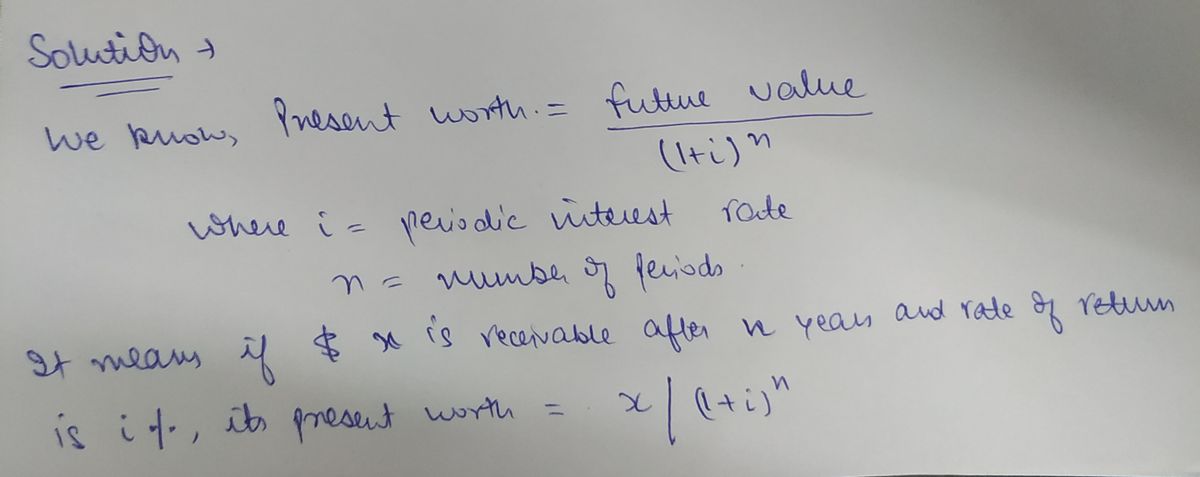 Solution →
We know, Present worth. = future value / (1+i)^n
where i = periodic interest rate
n = number of periods.
It means if $ x is receivable after n years and rate of return
is i %, its present worth = x / (1+i)^n